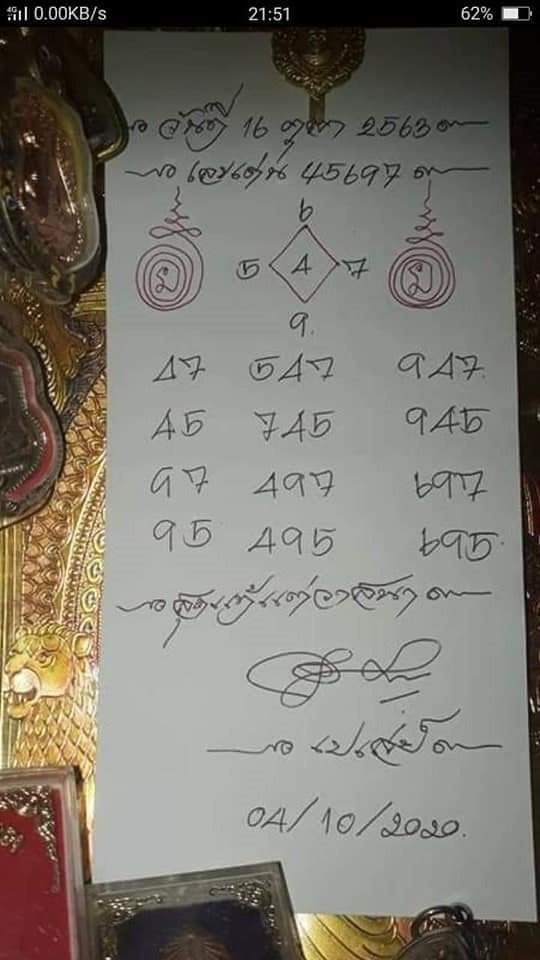 4G 0.00KB/s 21:51 62%
วันที่ 16 ตุลา 2563
เลขเด่น 45697
6
5 4 7
9.
47 547 947.
45 745 945
97 497 697
95 495 695.
สุดแท้แต่วาสนา
04/10/2020.